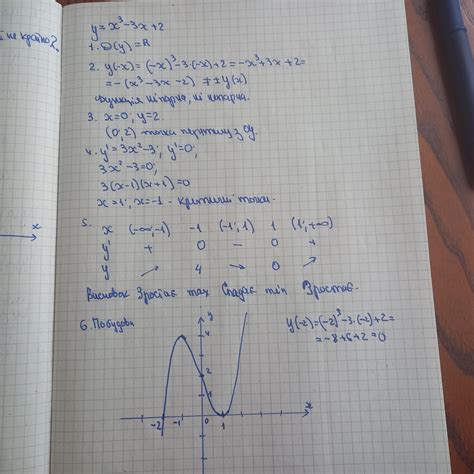 і не крайно 2.
y=x³-3x+2
1. D(y)=R
2. y(-x)=(-x)³-3·(-x)+2=-x³+3x+2=
=-(x³-3x-2) ≠±y(x)
Функція ні парна, ні непарна.
3. x=0; y=2.
(0;2) точки перетину з Oy.
4. y'=3x²-3; y'=0;
3x²-3=0;
3(x-1)(x+1)=0
x=1; x=-1 - критичні точки.
5. x (-∞;-1) -1 (-1;1) 1 (1;+∞)
y' + 0 - 0 +
y ↗ 4 → 0 ↗
Висновок Зростає max Спадає min Зростає.
6. Побудова
y(-2)=(-2)³-3·(-2)+2=
=-8+6+2=0
y
4
2
1
-2 -1 1 x
x